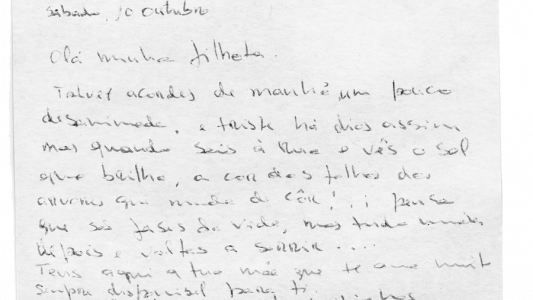 sábado, 10 outubro
Olá minha filhota.
Talvez acordes de manhã, um pouco
desanimada, e triste há dias assim
mas quando sais à Rua e vês o sol
que brilha, a cor das folhas das
arvores que muda de côr!.. pensa
que são fases da vida, mas tudo muda
depois e voltas a SORRIR....
Tens aqui a tua mãe que te ama muit
sempre disponivel para ti.